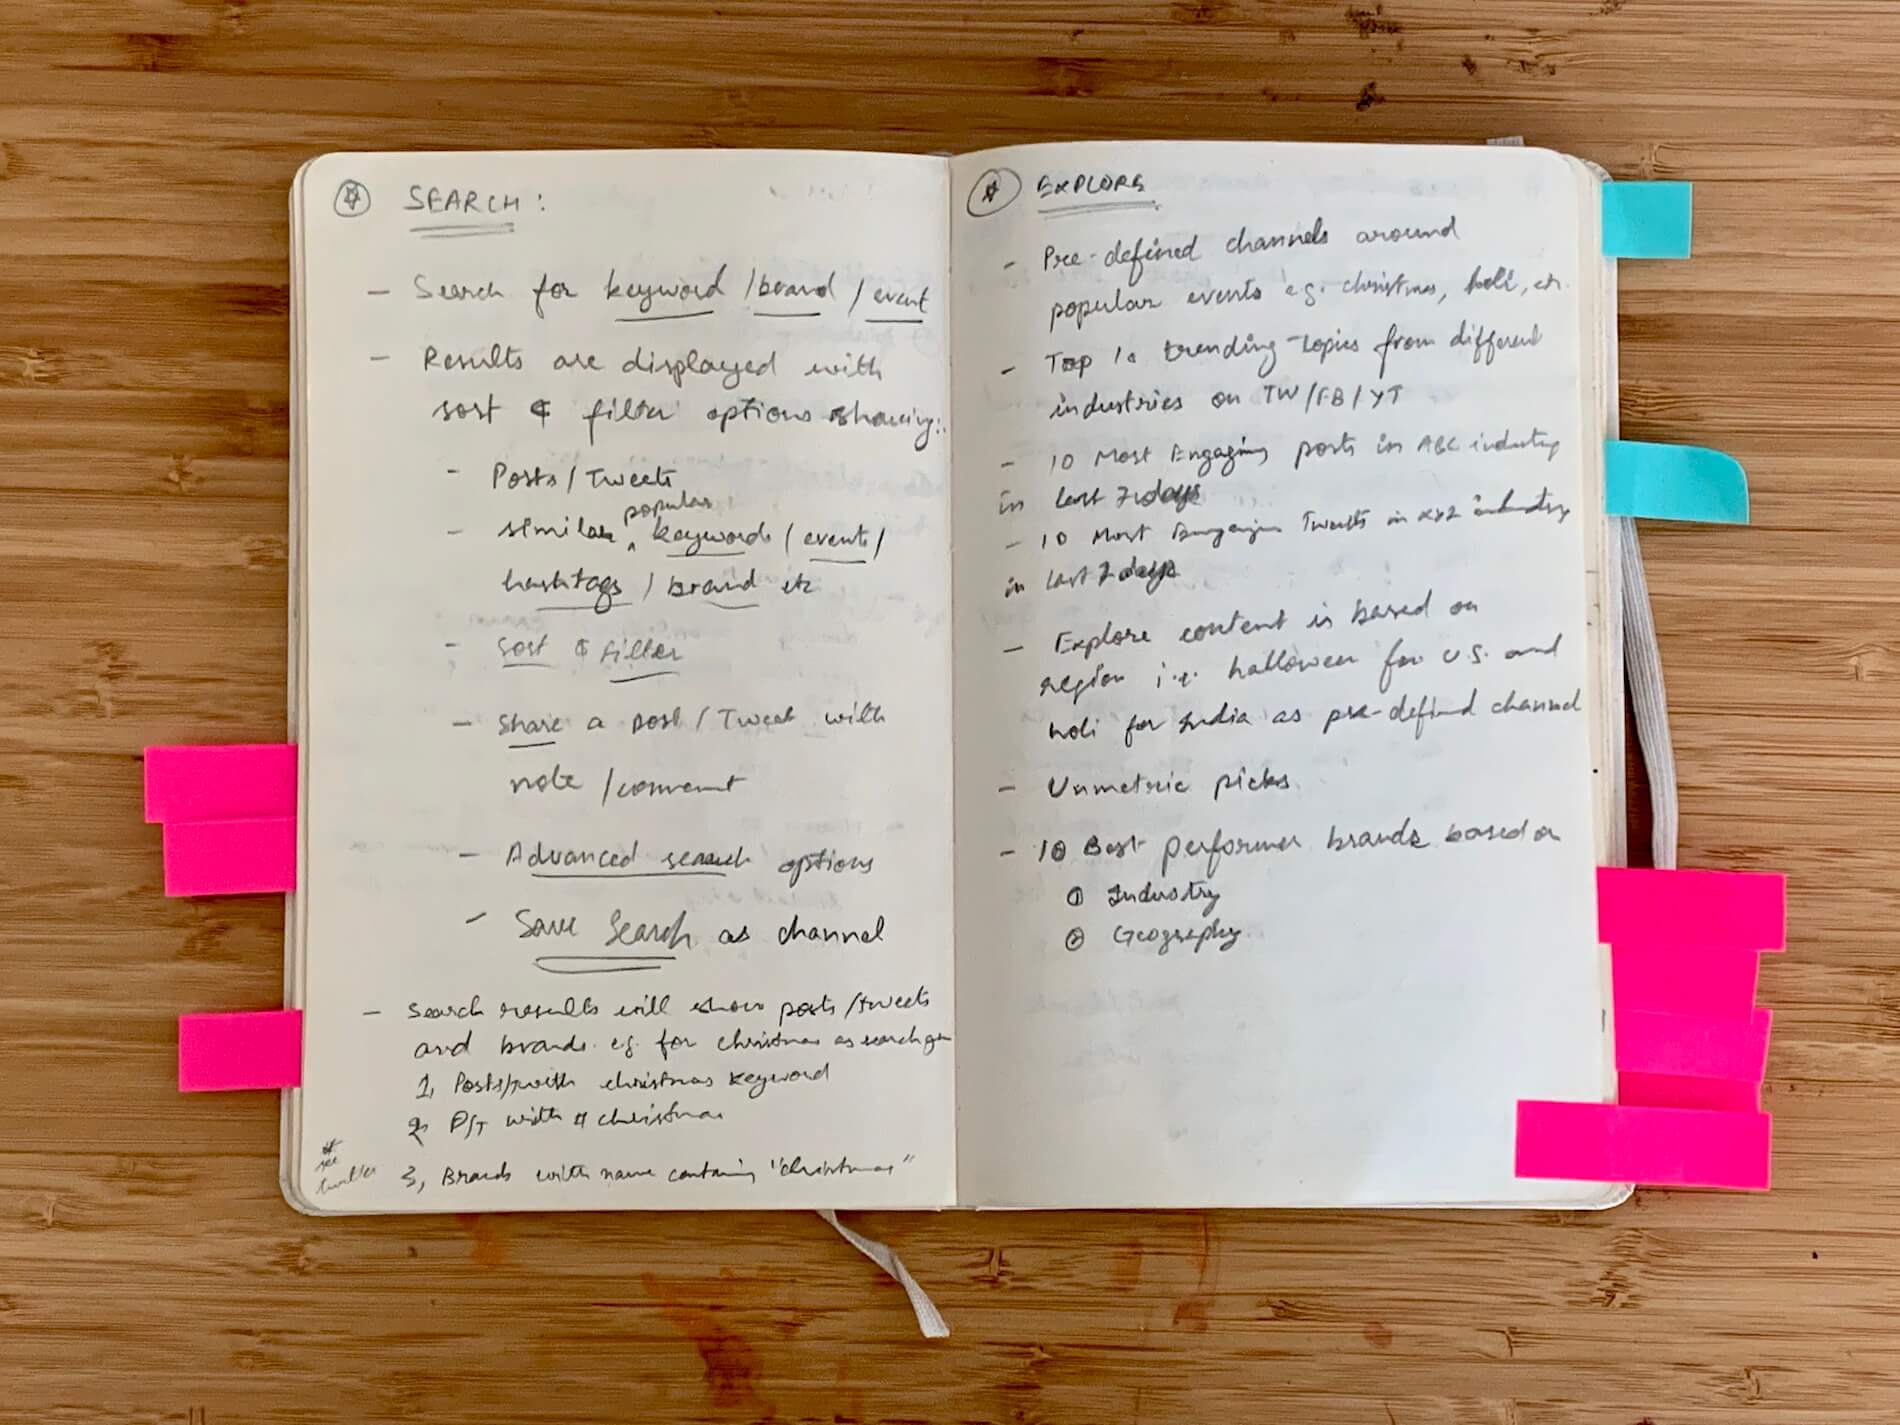 SEARCH:
- Search for keyword / brand / event
- Results are displayed with
sort & filter options showing:
- Posts / Tweets
popular
- similar ^ keywords / events /
hashtags / Brand etc
- Sort & Filter
- Share a post / Tweet with
note / comment
- Advanced search options
- Save Search as channel
- Search results will show posts / tweets
and brands. e.g. for christmas as search
1, Posts/ with christmas keyword
2, P/T with # christmas
* see twitter
3, Brands with name containing "christmas"
EXPLORE
- Pre-defined channels around
popular events e.g. christmas, holi, etc.
- Top 10 trending topics from different
industries on TW / FB / YT
- 10 Most Engaging posts in ABC industry
in last 7 days
- 10 Most Engaging Tweets in XYZ industry
in last 7 days
- Explore content is based on
region i.e. halloween for U.S. and
holi for India as pre-defined channel
- Unmetric picks
- 10 Best performer brands based on
① Industry
② Geography